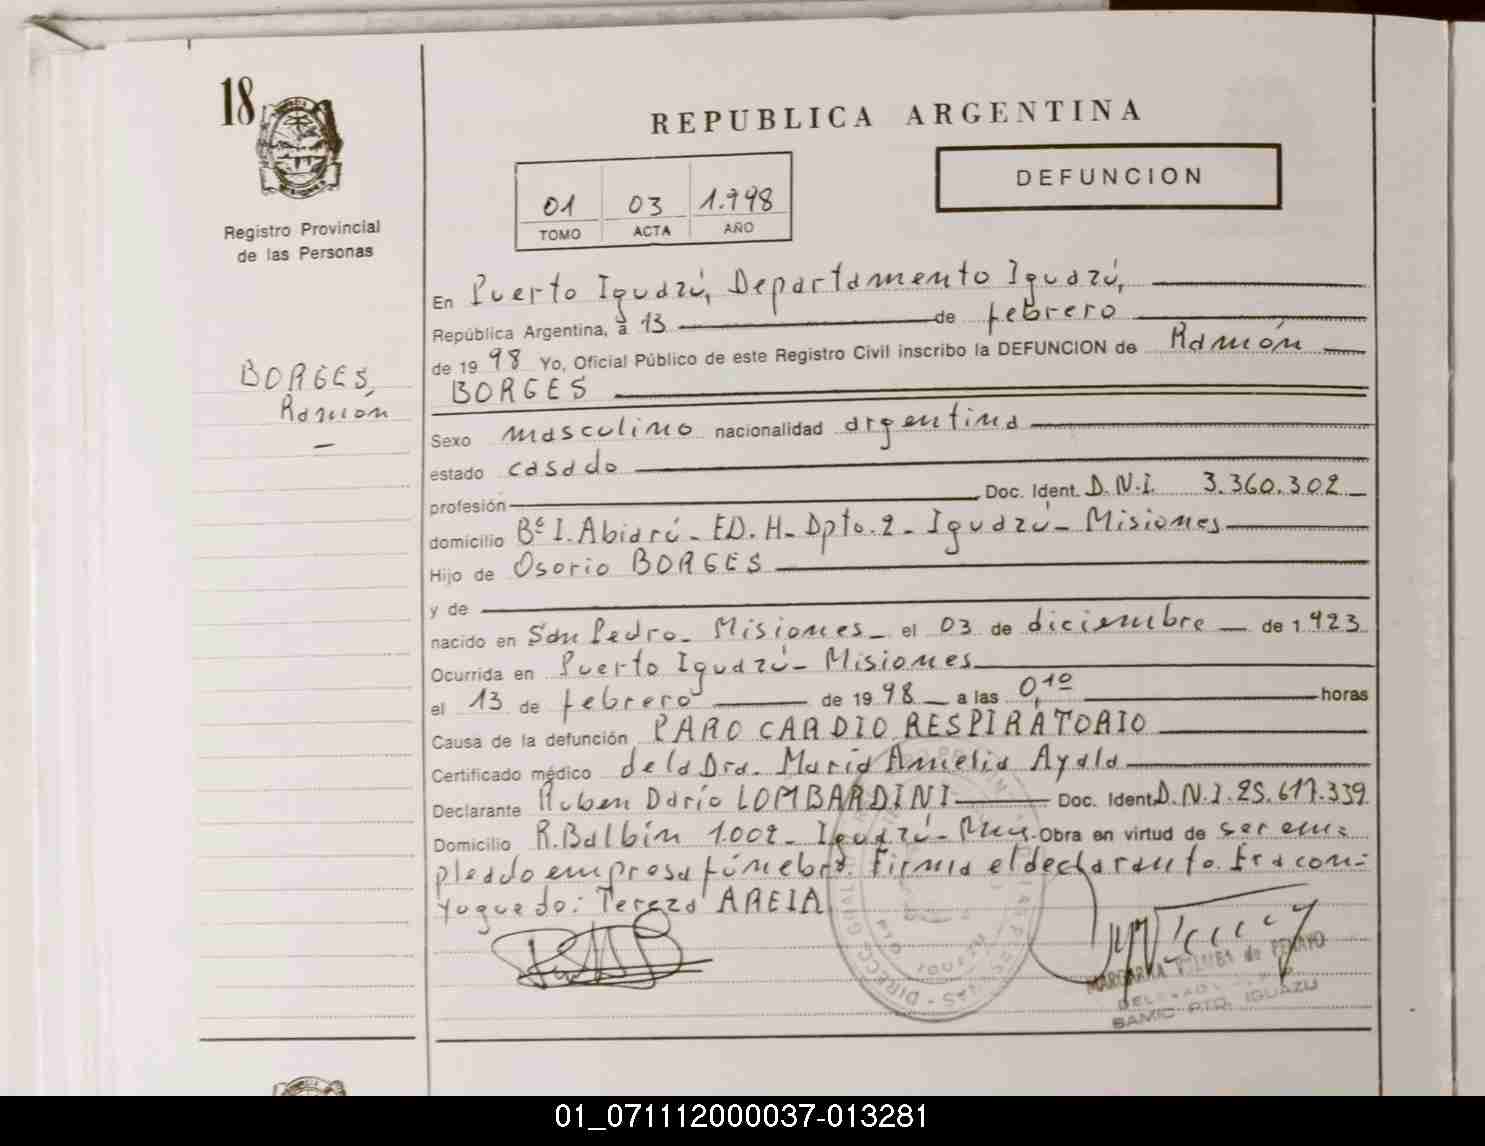 18
Registro Provincial
de las Personas
BORGES,
Ramón
REPUBLICA ARGENTINA
DEFUNCION
01 03 1.998
TOMO ACTA AÑO
En Puerto Iguazú, Departamento Iguazú,
República Argentina, a 13 de febrero
de 1998 Yo, Oficial Público de este Registro Civil inscribo la DEFUNCION de Ramón
BORGES
Sexo masculino nacionalidad argentina
estado casado
profesión Doc. Ident. D.N.I. 3.360.302
domicilio Bº I. Abiarú - ED. H - Dpto. 2 - Iguazú - Misiones
Hijo de Osorio BORGES
y de
nacido en San Pedro - Misiones - el 03 de diciembre de 1923
Ocurrida en Puerto Iguazú - Misiones
el 13 de febrero de 1998 a las 0,10 horas
Causa de la defunción PARO CARDIO RESPIRATORIO
Certificado médico de la Dra. María Amelia Ayala
Declarante Ruben Darío LOMBARDINI Doc. Ident. D.N.I. 25.617.339
Domicilio R. Balbín 1.002 - Iguazú - Mnes. Obra en virtud de ser em=
pleado empresa fúnebre. Firma el declarante. Era con=
yugue do: Tereza AREIA
MARGARITA de
DELEGADA
SAMIC PTO. IGUAZU
01_071112000037-013281